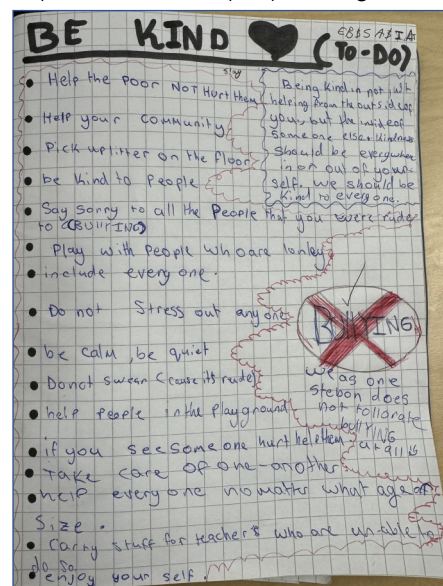 BE KIND
(TO-DO)
Help the Poor NOT Hurt them
Help your community
Pick up litter on the floor
be kind to People
Say sorry to all the People that you were rude
to (BULLYING)
Play with People who are lonley
include every one.
Do not Stress out any one
be calm, be quiet
Do not swear (cause its rude)
help people in the playground
if you see someone hurt help them
Take care of one-another
help everyone no matter what age or
Size.
Carry stuff for teachers who are un-able to
do so.
enjoy your self.
Being kind in not just
helping from the outside of
you, but the inside of
someone else. Kindness
should be everywhere
in or out of your-
self. We should be
kind to everyone.
BULLYING
We as one
Stebon does
not tollorate
bullYING
at all